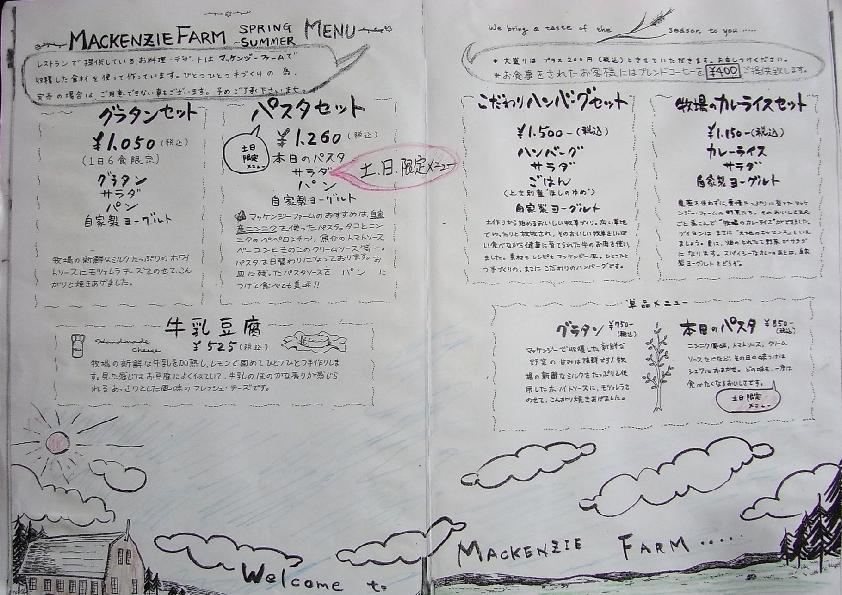 MACKENZIE FARM SPRING -SUMMER MENU
レストランで提供しているお料理・デザートはマッケンジーファームで
収穫した食材を使って作っています。ひとつひとつ手づくりの為、
完売の場合はご用意できない事もございます。予めご了承下さいませ。
グラタンセット
¥1.050(税込)
(1日6食限定)
グラタン
サラダ
パン
自家製ヨーグルト
牧場の新鮮なミルクたっぷりのホワイ
トソースにモッツァレラチーズをのせて、こん
がりと焼きあげました。
パスタセット
土日
限定
メニュー
¥1.260(税込)
本日のパスタ
サラダ
パン
自家製ヨーグルト
土.日.限定メニュー
マッケンジーファームのおすすめは、自家
産ニンニクを使ったパスタ。タコとニン
ニクのペペロンチーノ、魚介のトマトソース
ベーコンときのこのクリームソース等。
パスタは日替わりになっております。お
皿に残ったパスタソースを パン に
つけて食べても美味!!
牛乳豆腐
Handmade
cheese
¥525(税込)
牧場の新鮮な牛乳を加熱し、レモンで固めてひとつひとつ手作りしま
す。見た感じはお豆腐によくにていて、牛乳のほのかな香りが感じら
れるあっさりとした風味のフレッシュ・チーズです。
Welcome to
We bring a taste of the season to you .....
* 大盛りは プラス200円(税込)とさせていただきます。お申しつけください。
* お食事をされたお客様にはブレンドコーヒーを¥400でご提供致します。
こだわりハンバーグセット
¥1.500-(税込)
ハンバーグ
サラダ
ごはん
自家製ヨーグルト
牧場のカレーライスセット
¥1.150-(税込)
カレーライス
サラダ
自家製ヨーグルト
単品メニュー
グラタン ¥950-(税込)
マッケンジーで収穫した新鮮な
野菜の甘みは抜群です!牧
場の新鮮なミルクをたっぷりと使
用したホワイトソースに、モツァレラ
のせて、こんがり焼きあげました。
本日のパスタ ¥850-(税込)
ニンニク風味、トマトソース、クリーム
ソースなどなど。その日の味つけは
シェフにおまかせ。どの味も、一度は
食べたくなるおいしさです。
土日限定
メニュー
MACKENZIE FARM .....